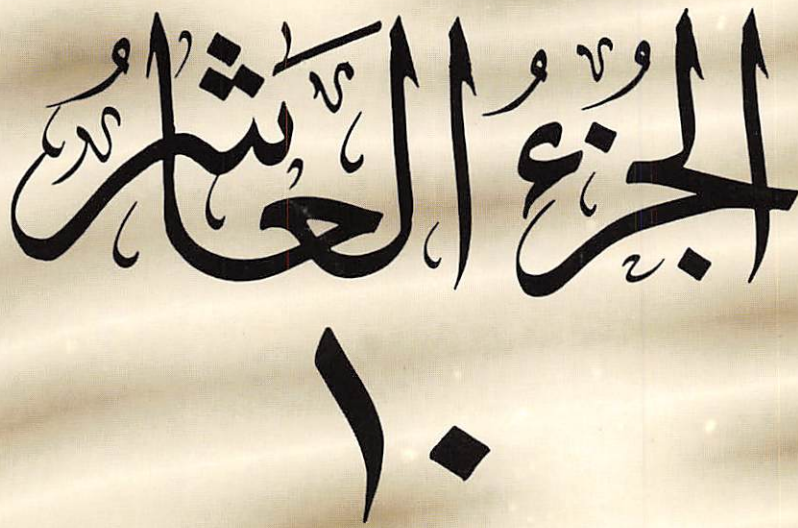 الجُزْءُ العَاشِرُ
١٠